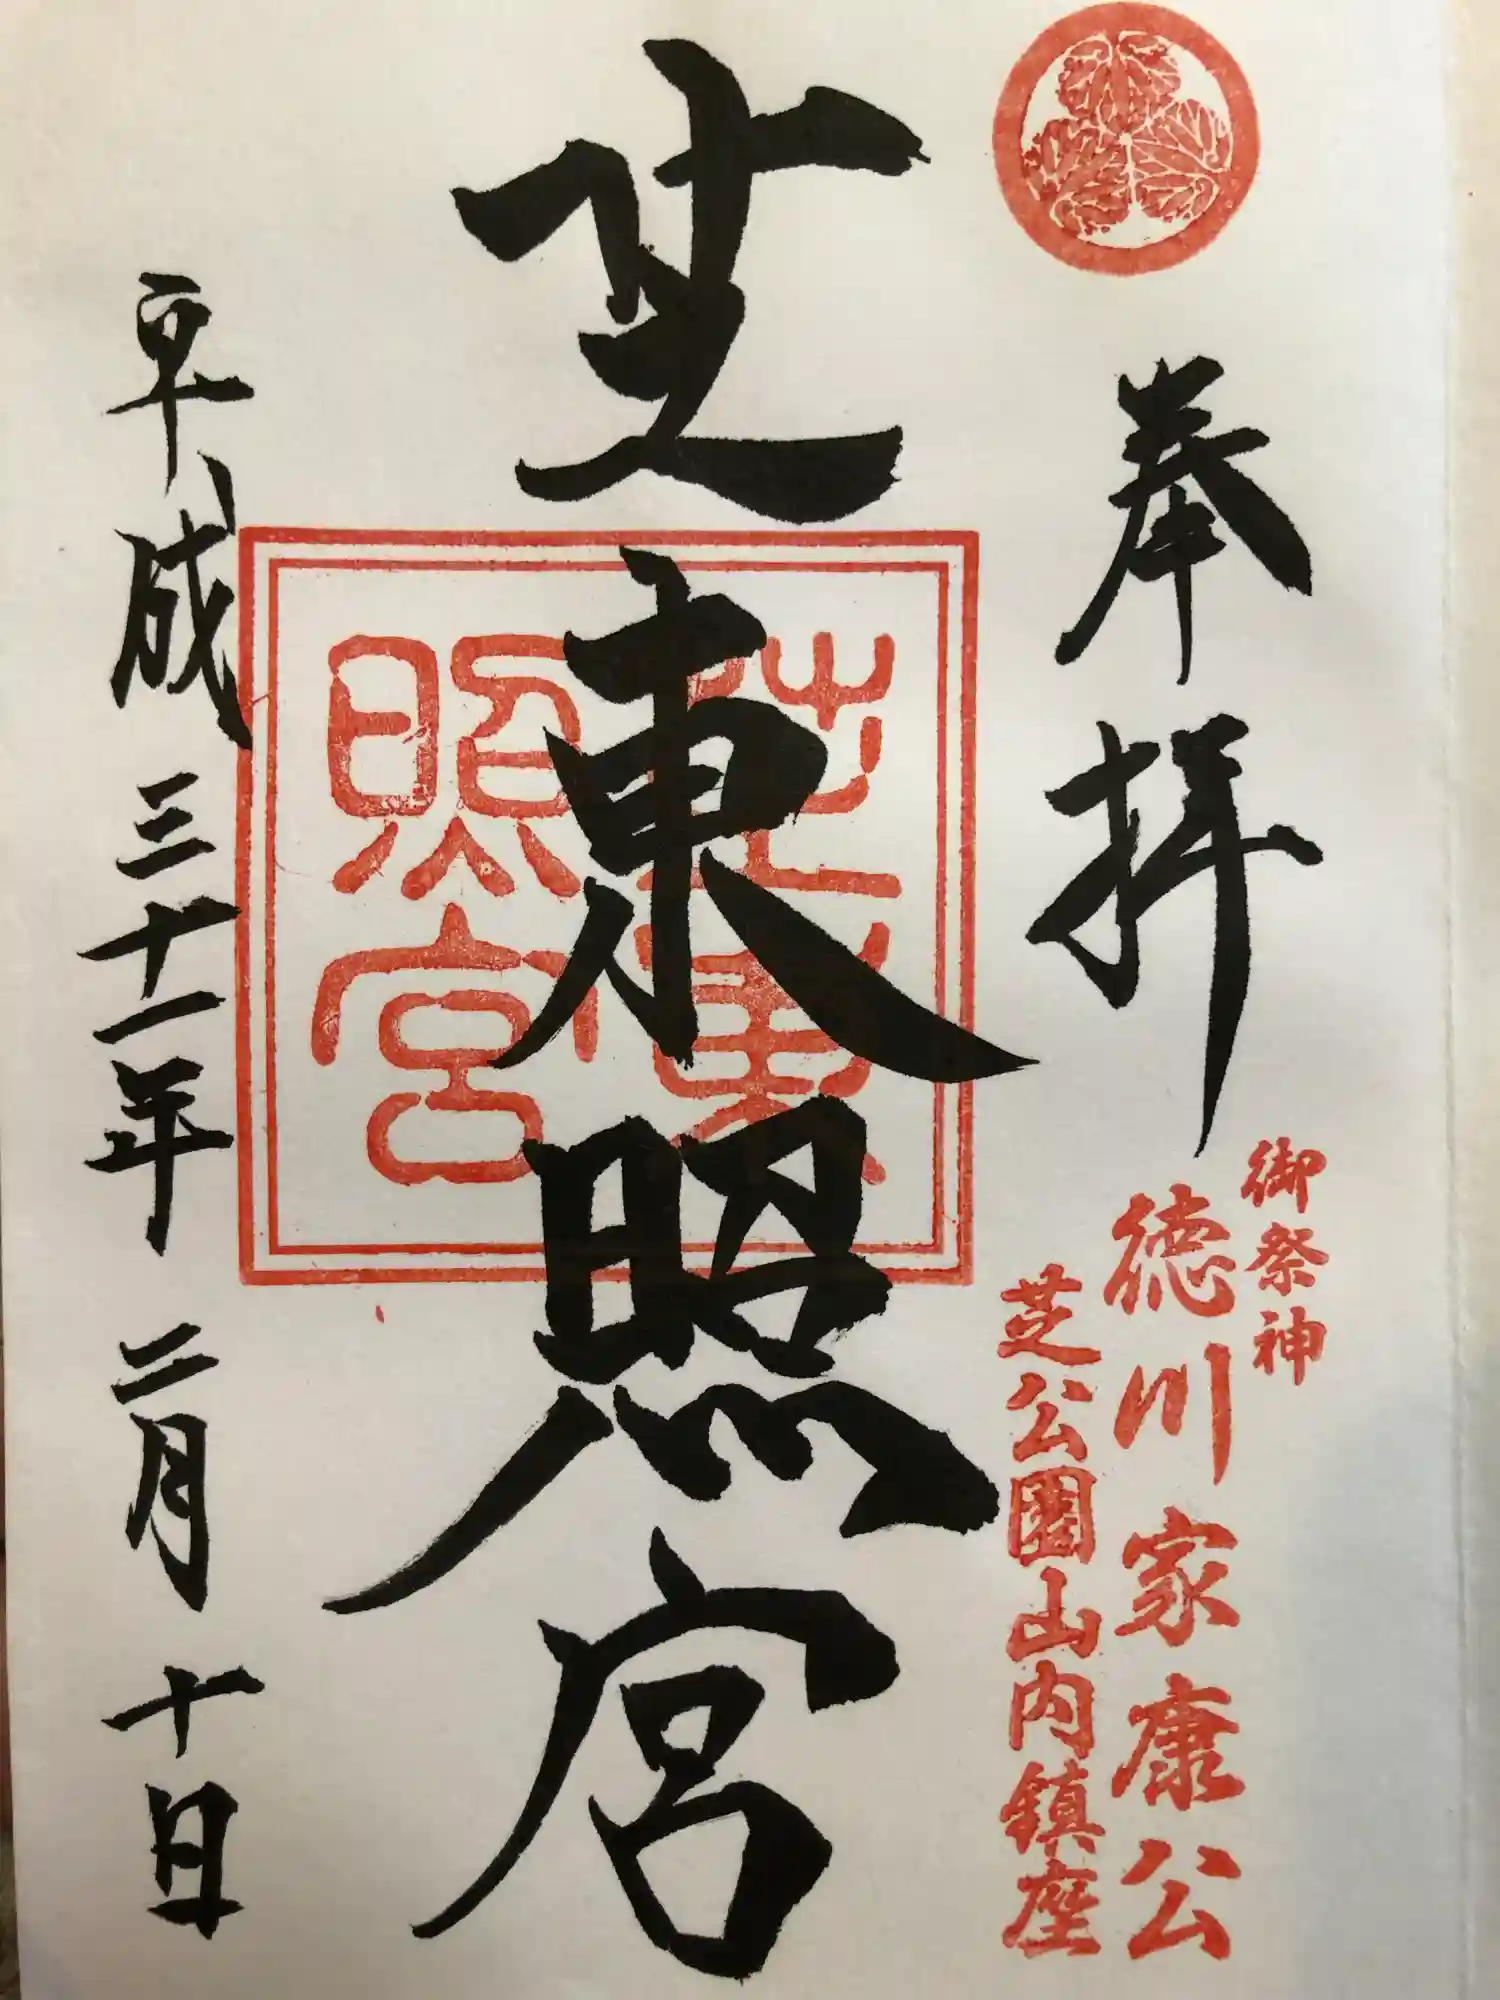 奉拝
御祭神
徳川家康公
芝公園山内鎮座
芝東照宮
芝東
照宮
平成三十一年二月十日